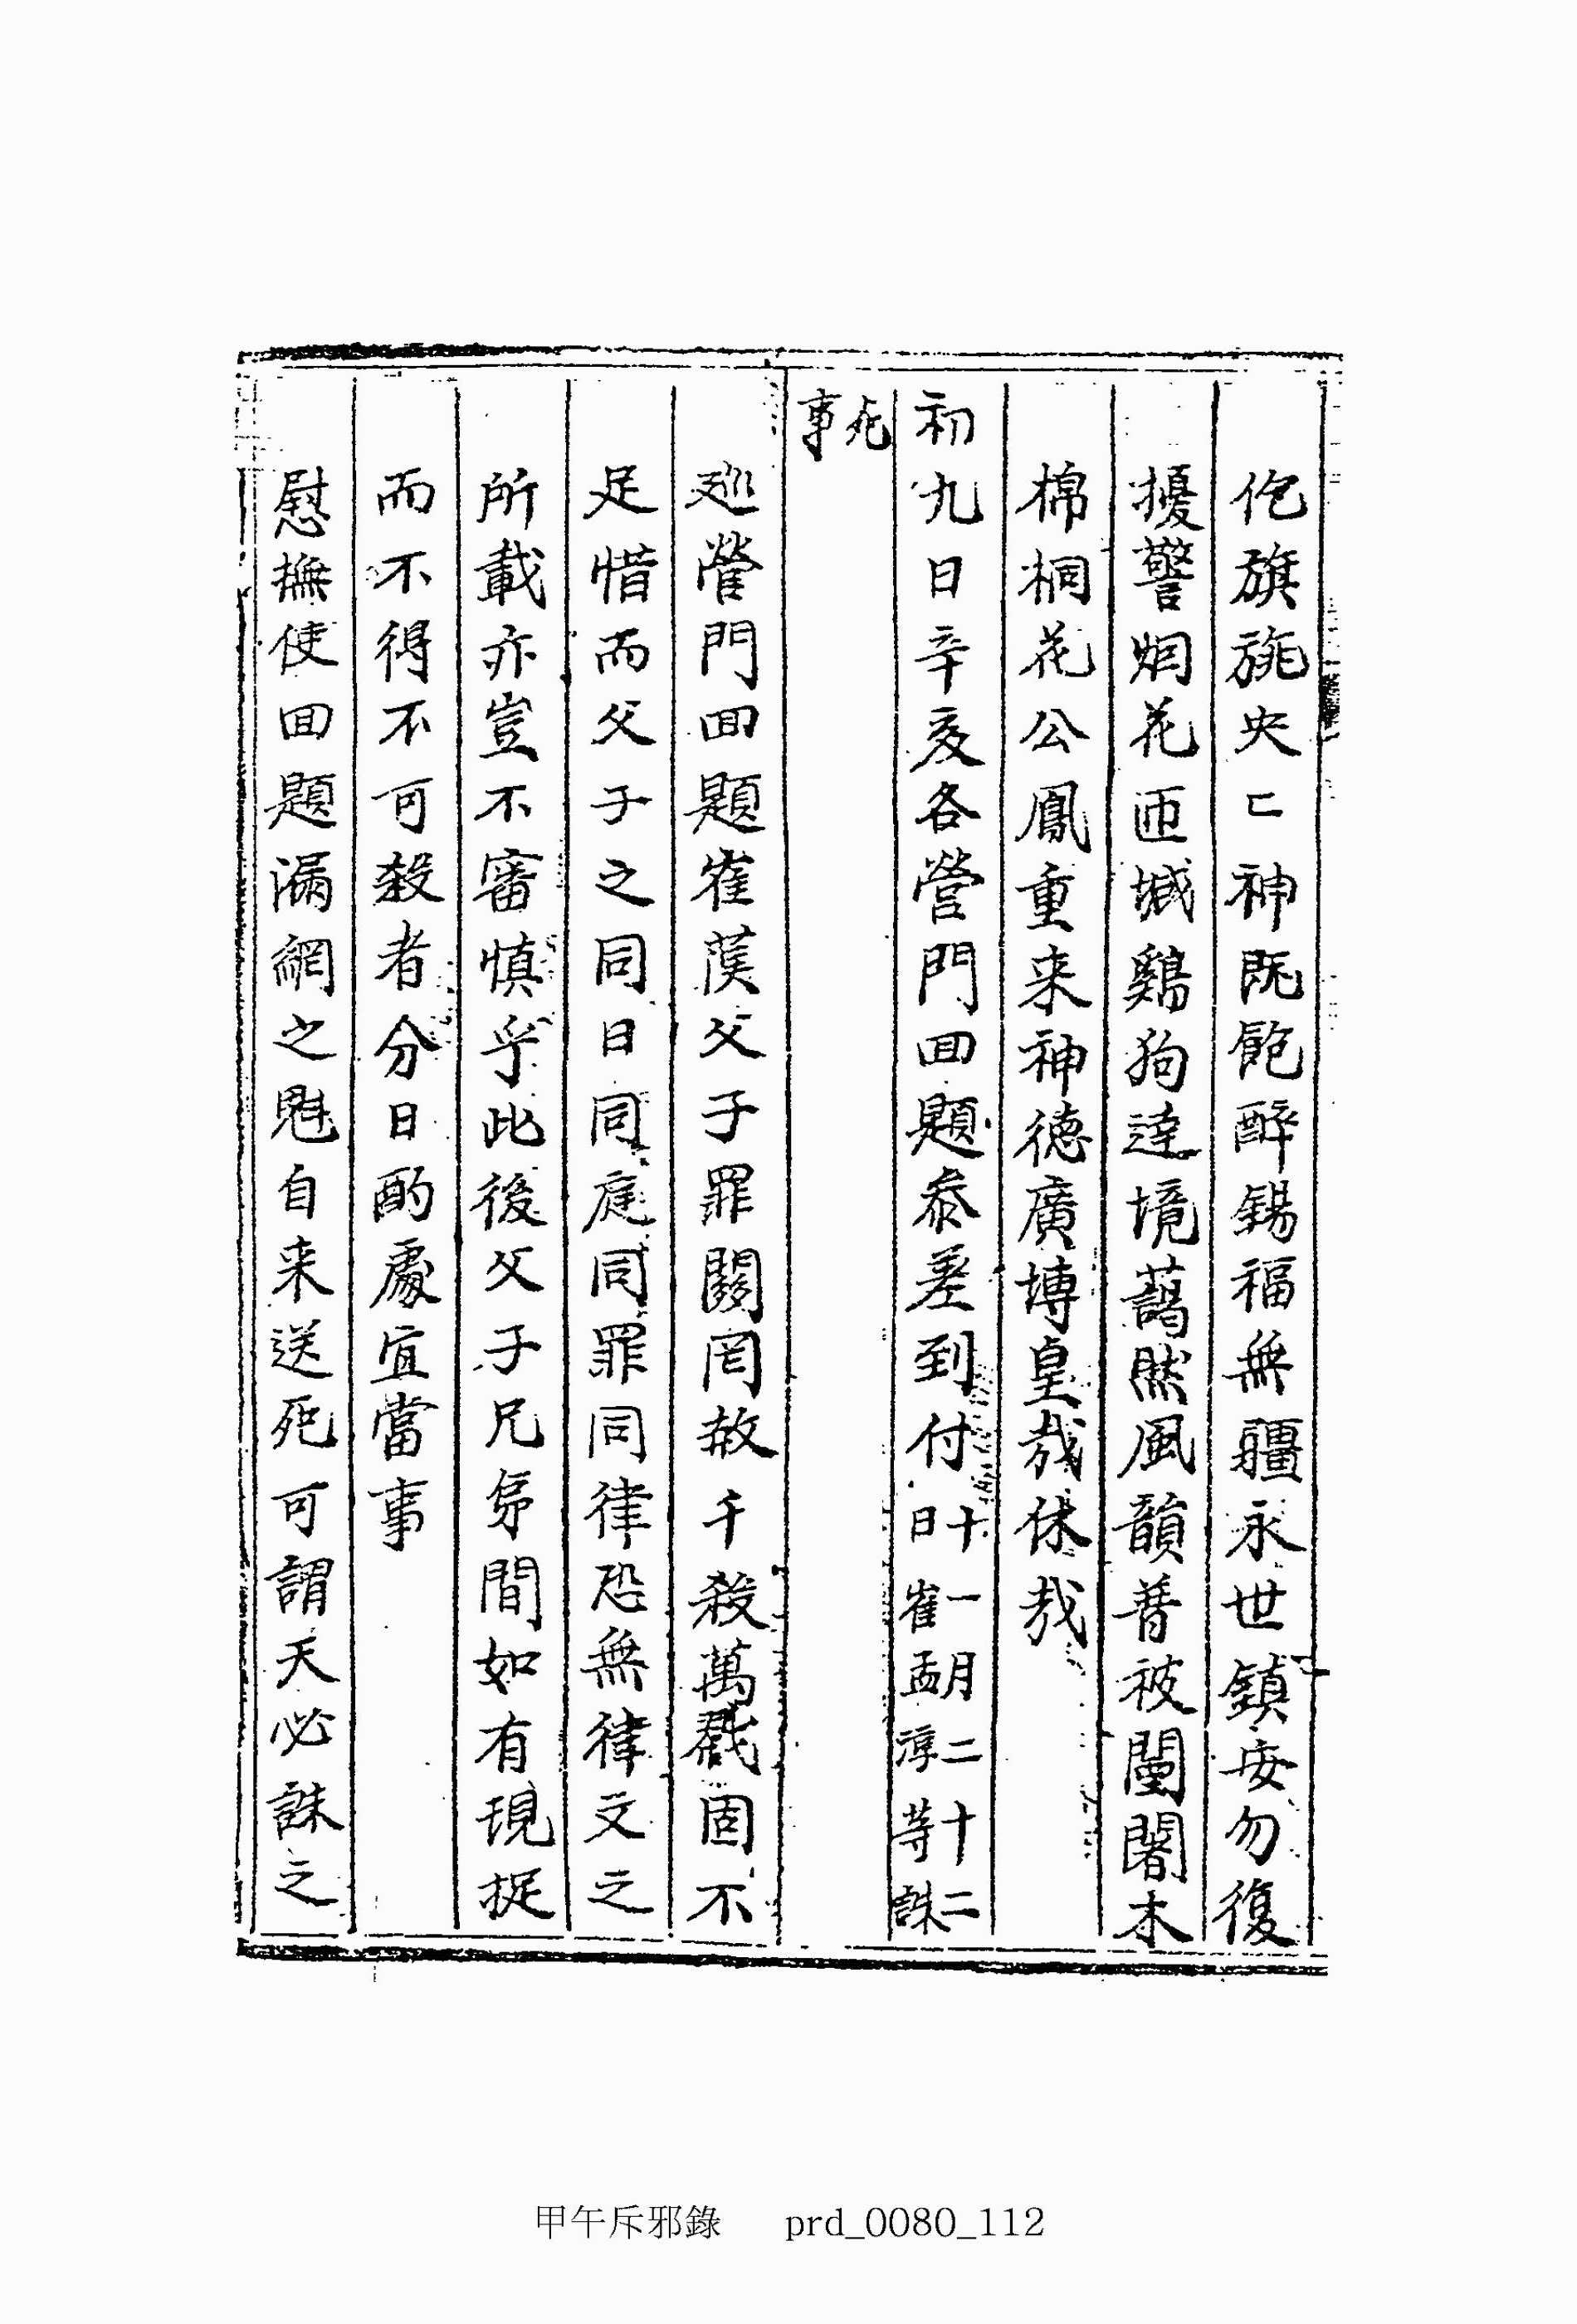 旗旐央〻神既飽醉錫福無疆永世鎮安勿復
擾警烟花匝城鷄狗達境藹然風韻普被闉闍木
棉桐花公鳳重来神德廣博皇哉休哉
初九日辛亥各營門回題叅差到付十一月二十二
日崔孟淳等誅
死
事
巡營門回題崔父子罪關罔赦千殺萬戮固不
足惜而父子之同日同庭同罪同律恐無律文之
所載亦豈不審慎乎此後父子兄弟間如有現捉
而不得不可殺者分日酌處宜當事
慰撫使回題漏網之魁自来送死可謂天必誅之
甲午斥邪錄 prd_0080_112